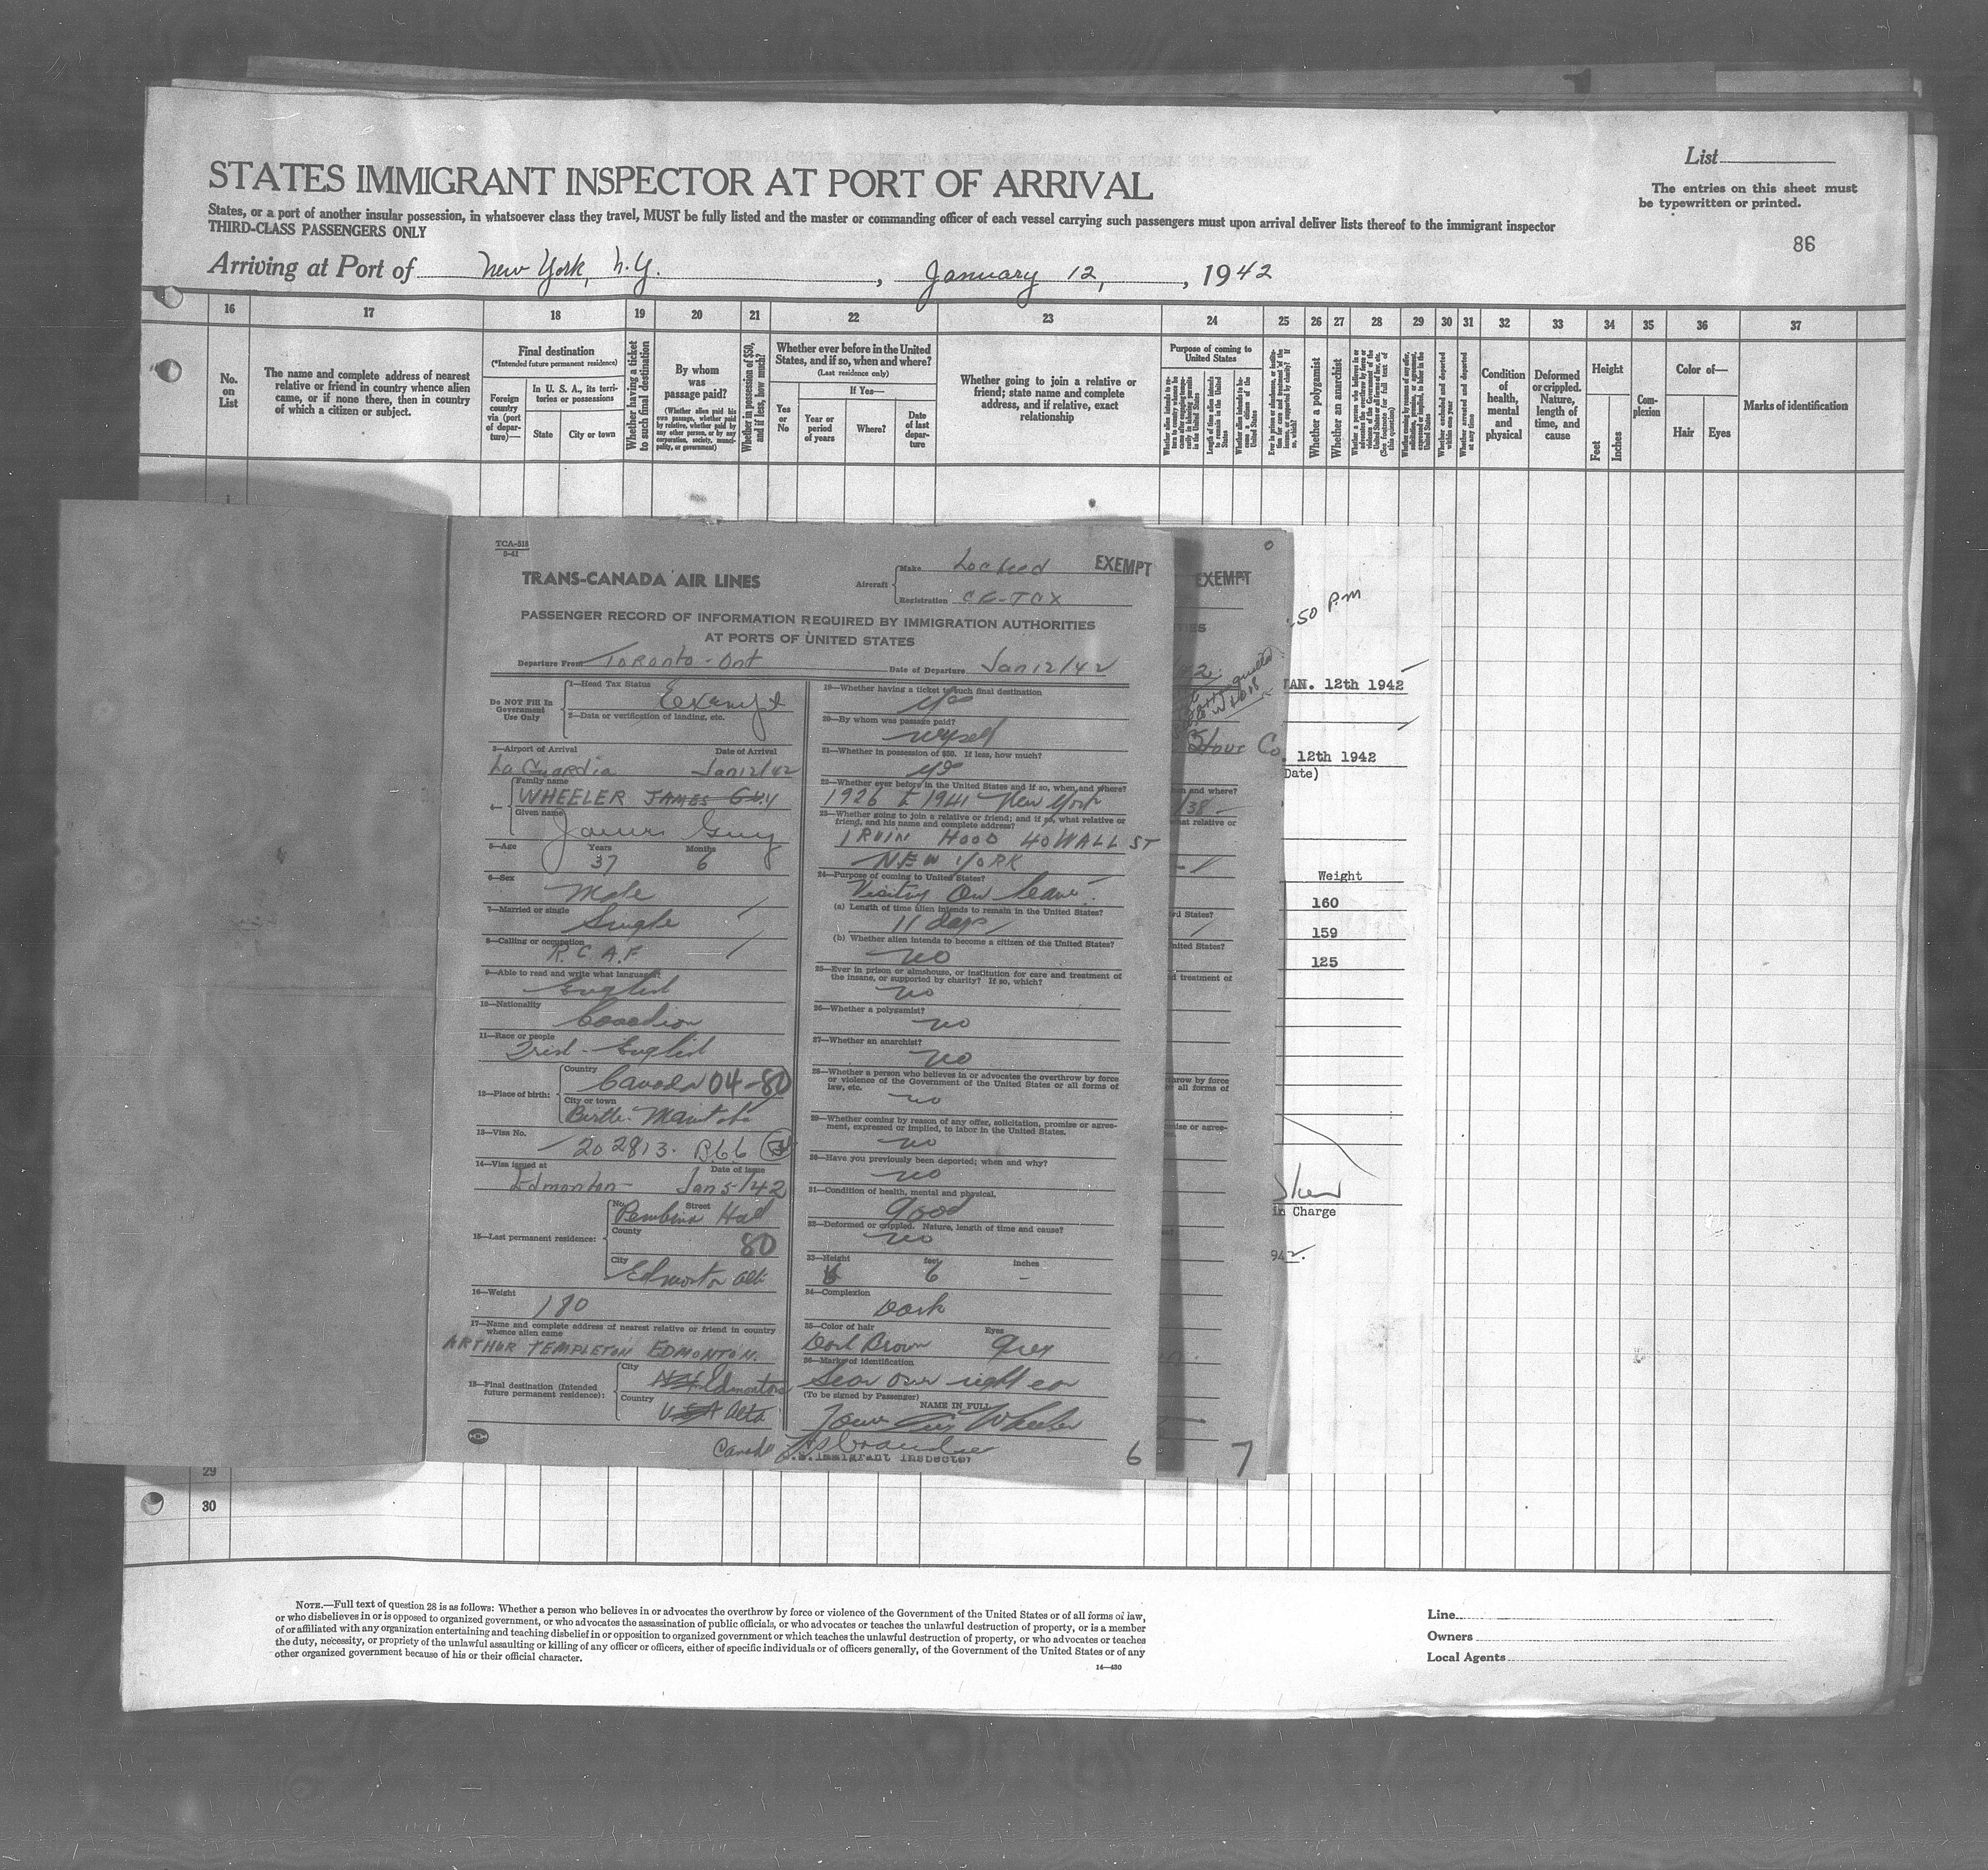 STATES IMMIGRANT INSPECTOR AT PORT OF ARRIVAL
List
The entries on this sheet must
be typewritten or printed.
States, or a port of another insular possession, in whatsoever class they travel, MUST be fully listed and the master or commanding officer of each vessel carrying such passengers must upon arrival deliver lists thereof to the immigrant inspector
THIRD-CLASS PASSENGERS ONLY
86
Arriving at Port of New York, N.Y. , January 12, , 1942
16 17 18 19 20 21 22 23 24 25 26 27 28 29 30 31 32 33 34 35 36 37
No. on List
The name and complete address of nearest relative or friend in country whence alien came, or if none there, then in country of which a citizen or subject.
Final destination
(*Intended future permanent residence)
Foreign country via (port of departure)—
In U. S. A., its territories or possessions
State
City or town
Whether having a ticket to such final destination
By whom was passage paid?
(Whether alien paid his own passage, whether paid by relative, whether paid by any other person, or by any corporation, society, municipality, or government)
Whether in possession of $50, and if less, how much?
Whether ever before in the United States, and if so, when and where?
(Last residence only)
Yes or No
If Yes—
Year or period of years
Where?
Date of last departure
Whether going to join a relative or friend; state name and complete address, and if relative, exact relationship
Purpose of coming to United States
Length of time alien intends to remain in the United States
Whether a polygamist
Whether an anarchist
Whether excluded and deported within one year
Whether arrested and deported at any time
Condition of health, mental and physical
Deformed or crippled. Nature, length of time, and cause
Height
Feet
Inches
Complexion
Color of—
Hair
Eyes
Marks of identification
TCA-518
5-41
TRANS-CANADA AIR LINES
Aircraft
Make Locheed
Registration CF-TCX
EXEMPT
PASSENGER RECORD OF INFORMATION REQUIRED BY IMMIGRATION AUTHORITIES
AT PORTS OF UNITED STATES
Departure From Toronto - Ont
Date of Departure Jan 12/42
Do NOT Fill In Government Use Only
1—Head Tax Status
Exempt
2—Data or verification of landing, etc.
3—Airport of Arrival Date of Arrival
La Guardia Jan 12/42
4—
Family name
WHEELER JAMES GUY
Given name
James Guy
5—Age Years Months
37 6
6—Sex
Male
7—Married or single
Single
8—Calling or occupation
R.C.A.F
9—Able to read and write what language?
English
10—Nationality
Canadian
11—Race or people
Irish - English
12—Place of birth:
Country
Canada 04-80
City or town
Birtle - Manitoba
13—Visa No.
202813. B66
14—Visa issued at Date of Issue
Edmonton - Jan 5/42
15—Last permanent residence:
No. Street
Pembina Hall
County
80
City
Edmonton Alta
16—Weight
180
17—Name and complete address of nearest relative or friend in country
whence alien came
ARTHUR TEMPLETON EDMONTON.
18—Final destination (Intended
future permanent residence):
City
Edmonton
Country
USA Alta
Canada
19—Whether having a ticket to such final destination
yes
20—By whom was passage paid?
myself
21—Whether in possession of $50. If less, how much?
yes
22—Whether ever before in the United States and if so, when and where?
1926 to 1941 New York
23—Whether going to join a relative or friend; and if so, what relative or
friend, and his name and complete address?
IRVIN HOOD 40 WALL ST
NEW YORK
24—Purpose of coming to United States?
Visiting on leave
(a) Length of time alien intends to remain in the United States?
11 days
(b) Whether alien intends to become a citizen of the United States?
no
25—Ever in prison or almshouse, or institution for care and treatment of
the insane, or supported by charity? If so, which?
no
26—Whether a polygamist?
no
27—Whether an anarchist?
no
28—Whether a person who believes in or advocates the overthrow by force
or violence of the Government of the United States or all forms of
law, etc.
no
29—Whether coming by reason of any offer, solicitation, promise or agree-
ment, expressed or implied, to labor in the United States.
no
30—Have you previously been deported; when and why?
no
31—Condition of health, mental and physical.
good
32—Deformed or crippled. Nature, length of time and cause?
no
33—Height feet inches
6 -
34—Complexion
Dark
35—Color of hair Eyes
Dark Brown Grey
36—Marks of identification
Scar over right ear
(To be signed by Passenger)
NAME IN FULL
James Guy Wheeler
U.S. Immigrant Inspector
6
EXEMPT
Stove Co
7
.50 P.M
JAN. 12th 1942
12th 1942
Date)
Weight
160
159
125
in Charge
942.
29
30
NOTE.—Full text of question 28 is as follows: Whether a person who believes in or advocates the overthrow by force or violence of the Government of the United States or of all forms of law,
or who disbelieves in or is opposed to organized government, or who advocates the assassination of public officials, or who advocates or teaches the unlawful destruction of property, or is a member
of or affiliated with any organization entertaining and teaching disbelief in or opposition to organized government or which teaches the unlawful destruction of property, or who advocates or teaches
the duty, necessity, or propriety of the unlawful assaulting or killing of any officer or officers, either of specific individuals or of officers generally, of the Government of the United States or of any
other organized government because of his or their official character.
14—430
Line
Owners
Local Agents